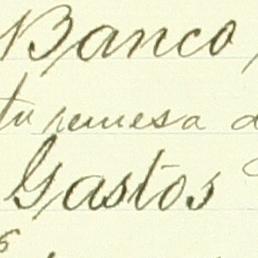 Banco
tu remesa d
Gastos